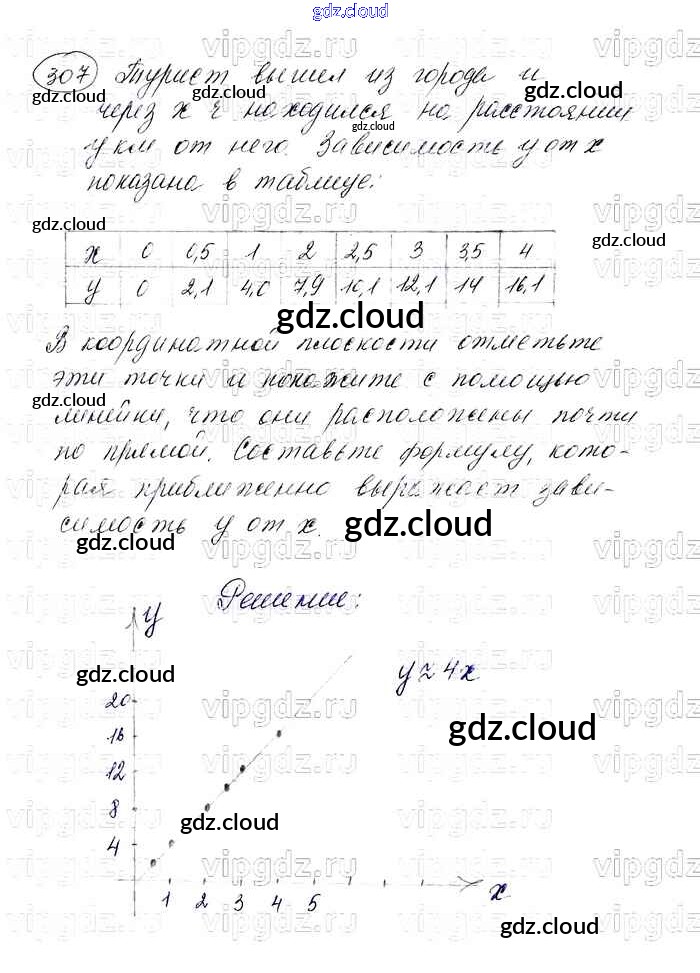 gdz.cloud
307 Турист вышел из города и
через x ч находился на расстоянии
y км от него. Зависимость y от x
показана в таблице:
x 0 0,5 1 2 2,5 3 3,5 4
y 0 2,1 4,0 7,9 10,1 12,1 14 16,1
gdz.cloud
В координатной плоскости отметьте
эти точки и покажите с помощью
линейки, что они расположены почти
по прямой. Составьте формулу, кото-
рая приближенно выражает зави-
симость y от x.
gdz.cloud
Решение:
y
y ≈ 4x
gdz.cloud
20
16
12
8
4
1 2 3 4 5 x
gdz.cloud